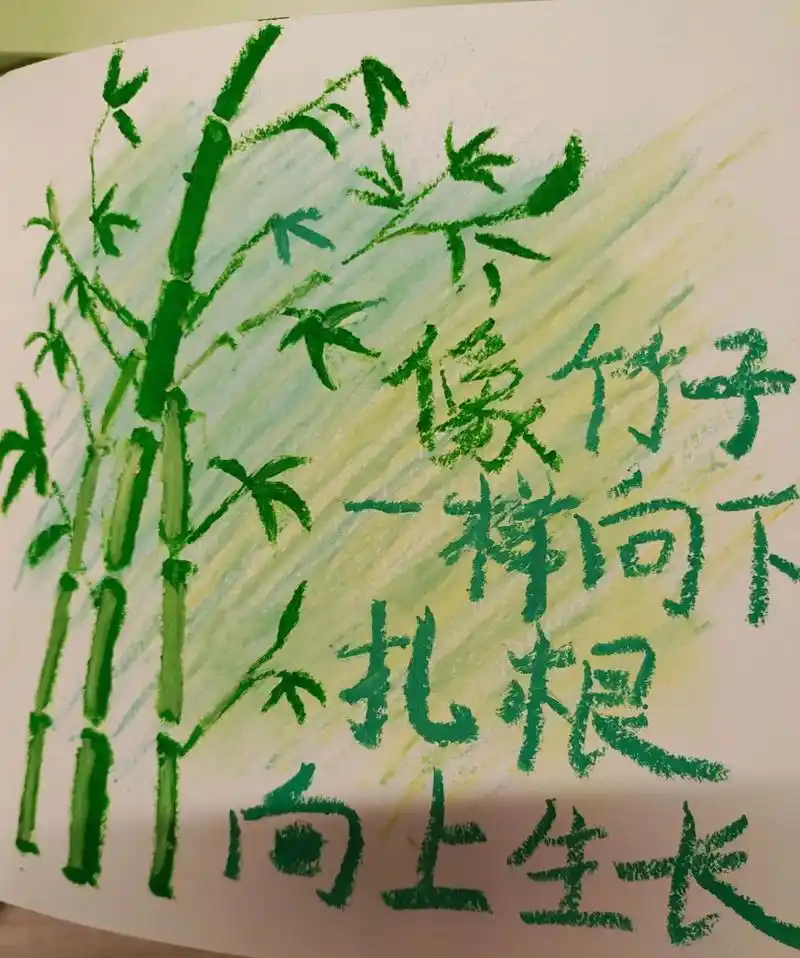 像竹子
一样向下
扎根
向上生长